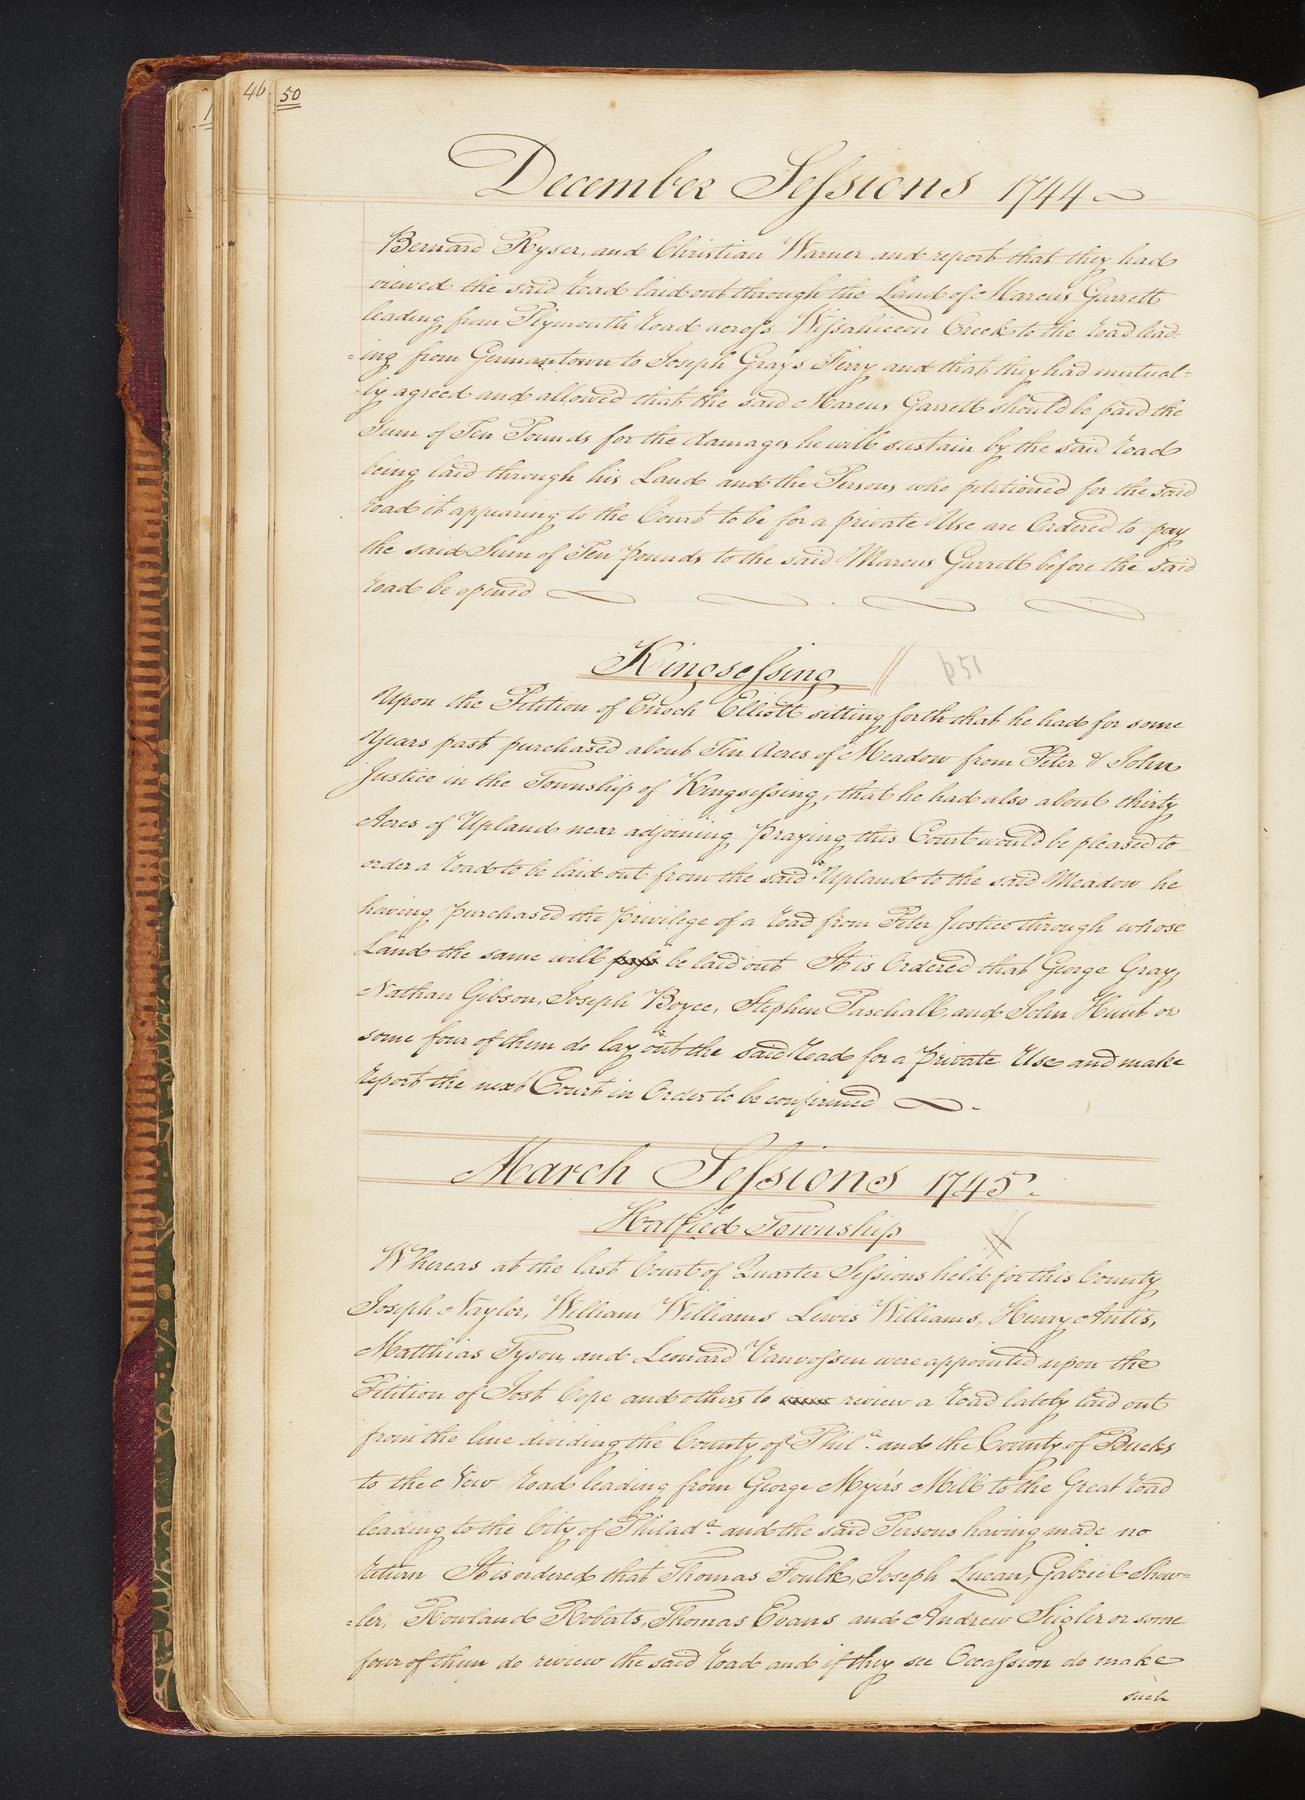 46
50
December Sessions 1744
Bernard Ryser, and Christian Warner and report that they had
viewed the said road laid out through the Land of Marcus Garrett
leading from Plymouth road across Wissahiccon Creek to the road lead=
=ing from Germantown to Joseph Grays Ferry and that they had mutual=
=ly agreed and allowed that the said Marcus Garrett should be paid the
Sum of Ten Pounds for the damages he will sustain by the said road
being laid through his Land and the Persons who petitioned for the said
road it appearing to the Court to be for a private Use are Ordered to pay
the said Sum of Ten pounds to the said Marcus Garrett before the said
road be opened
Kingsessing // p51
Upon the Petition of Enoch Elliott sitting forth that he had for some
Years past purchased about Ten Acres of Meadow from Peter & John
Justice in the Township of Kingsessing, that he had also about thirty
Acres of Upland near adjoining praying this Court would be pleased to
order a road to be laid out from the said Upland to the said Meadow he
having purchased the privilege of a road from Peter Justice through whose
Land the same will pass be laid out It is Ordered that George Gray,
Nathan Gibson, Joseph Boyce, Stephen Paschall, and John Hunt or
some four of them do lay out the said road for a private Use and make
report the next Court in Order to be confirmed
March Sessions 1745.
Hatfied Township //
Whereas at the last Court of Quarter Sessions held for this County
Joseph Naylor, William Williams Lewis Williams, Henry Antis,
Matthias Tyson and Leonard Vanvossen were appointed upon the
Petition of Jost Cope and others to review a road lately laid out
from the line dividing the County of Phila. and the County of Bucks
to the New road leading from George Myer's Mill to the Great road
leading to the City of Philada. and the said Persons having made no
return It is ordered that Thomas Foulk, Joseph Lucan, Gabriel Shew=
=ler, Rowland Roberts, Thomas Evans and Andrew Sigler or some
four of them do review the said road and if they see Occassion do make
such